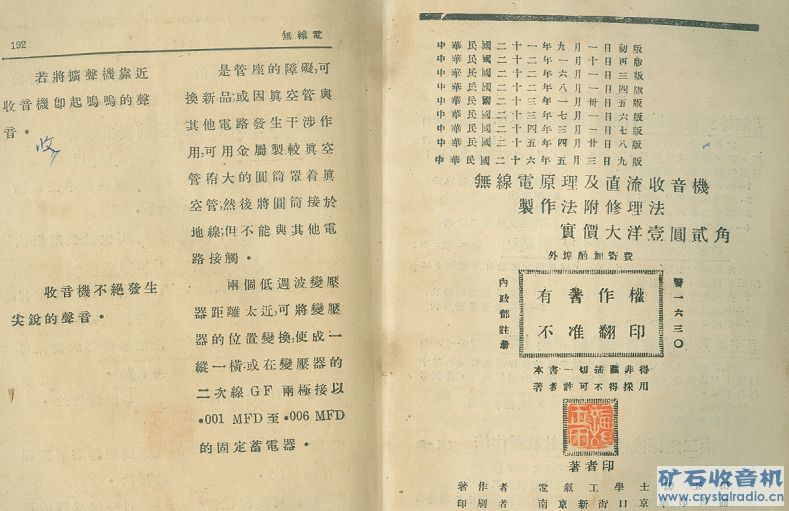 192
無線電
若將擴聲機靠近
收音機卽起嗚嗚的聲
音。
收
收音機不絕發生
尖銳的聲音。
是管座的障礙,可
換新品;或因眞空管與
其他電路發生干涉作
用,可用金屬製較眞空
管稍大的圓筒罩着眞
空管;然後將圓筒接於
地線;但不能與其他電
路接觸。
兩個低週波變壓
器距離太近,可將變壓
器的位置變換,使成一
縱一橫;或在變壓器的
二次線GF兩極接以
.001 MFD至.006 MFD
的固定蓄電器。
中華民國二十一年九月一日初版
中華民國二十二年一月十日再版
中華民國二十二年六月一日三版
中華民國二十二年八月一日四版
中華民國二十三年一月卅日五版
中華民國二十三年七月一日六版
中華民國二十四年三月一日七版
中華民國二十五年四月二日八版
中華民國二十六年五月三日九版
無線電原理及直流收音機
製作法附修理法
實價大洋壹圓貳角
外埠酌加寄費
內政部註册
有著作權
不准翻印
警一六三〇
本書一切插圖非得
著者許可不得採用
著者印
著作者 電氣工學士
印刷者 南京新街口京
矿石收音机
www.crystalradio.cn